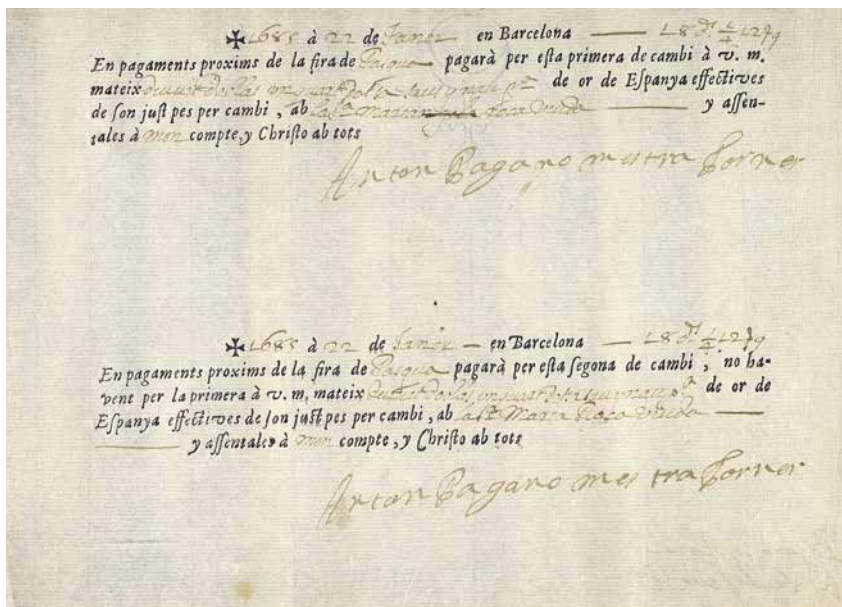 ✠ 1685 à 22 de Janer en Barcelona
En pagaments proxims de la fira de Pasqua pagarà per esta primera de cambi à v. m.
mateix de or de Espanya effectives
de son just pes per cambi, ab la Sra Roca viuda y assen-
tales à mon compte, y Christo ab tots
Anton Pagano mestra forner
✠ 1685 à 22 de Janer en Barcelona
En pagaments proxims de la fira de Pasqua pagarà per esta segona de cambi, no ha-
vent per la primera à v. m. mateix de or de
Espanya effectives de son just pes per cambi, ab la Sra Maria Roca viuda
y assentales à mon compte, y Christo ab tots
Anton Pagano mestra forner